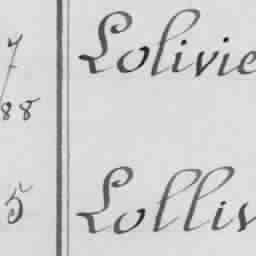 7 Lolivie
88
5 Lolliv